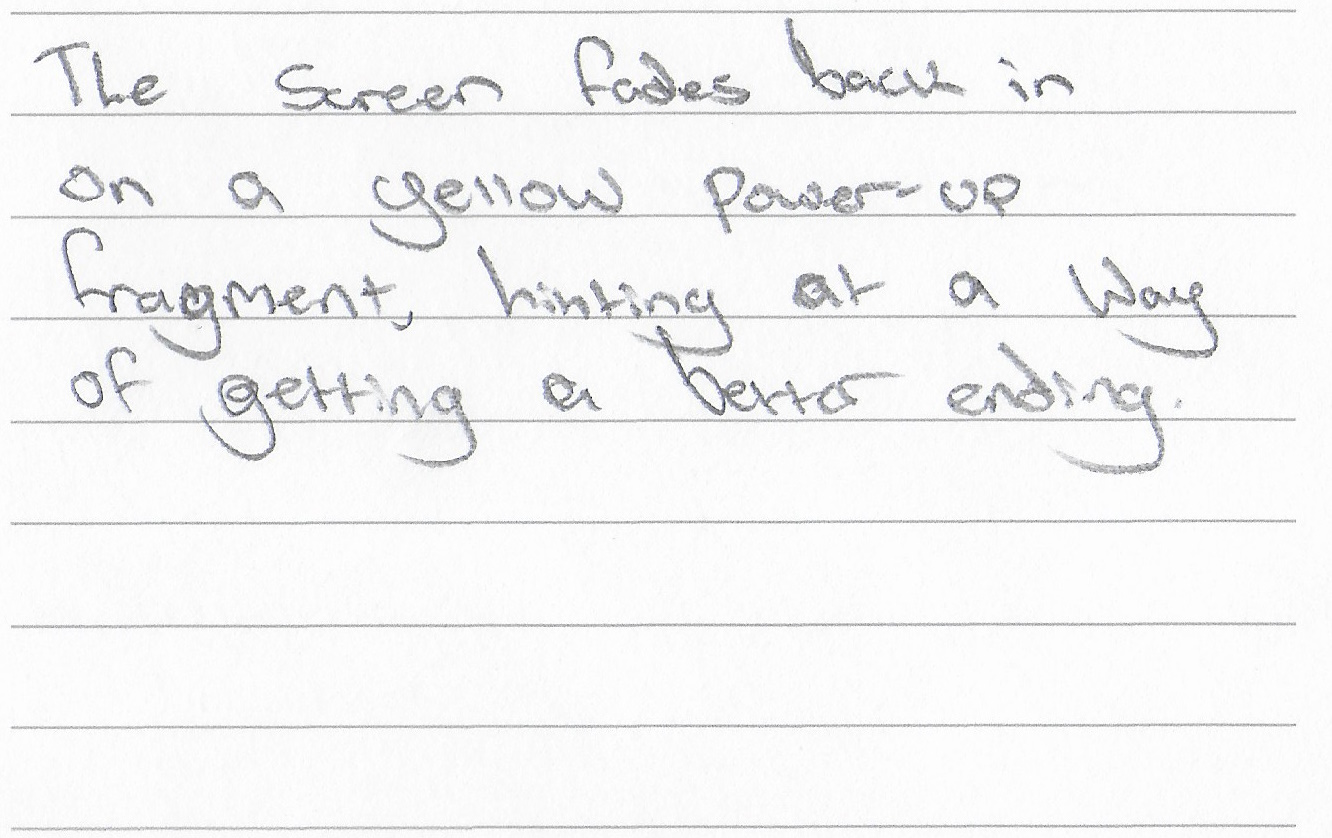 The screen fades back in
on a yellow power-up
fragment, hinting at a way
of getting a better ending.